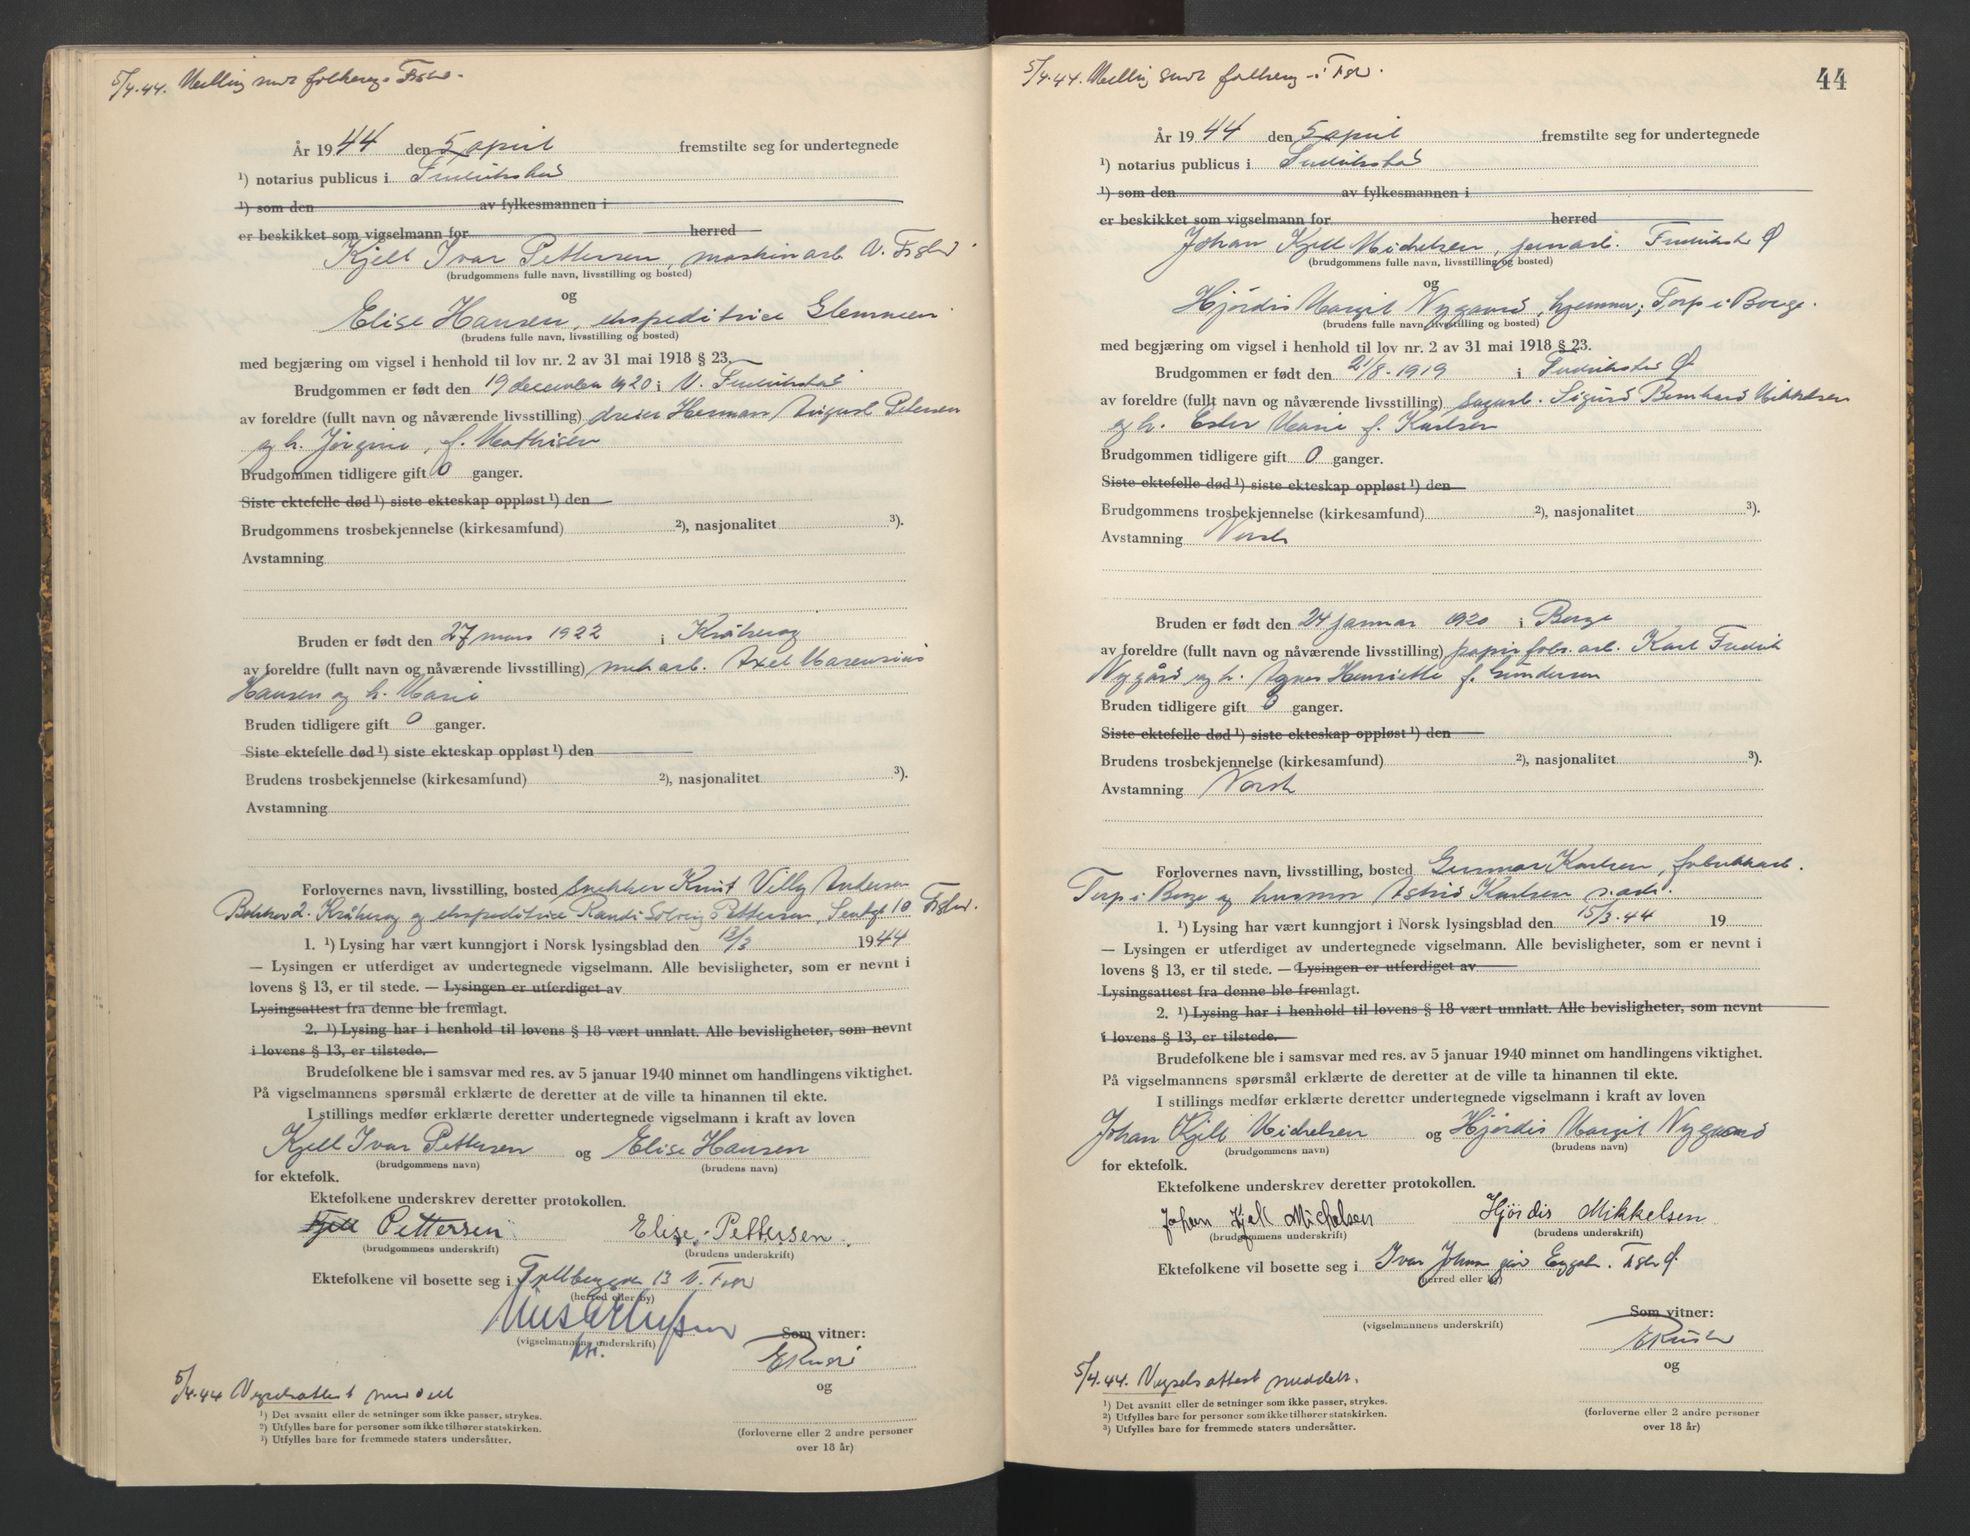 5/4.44. Melding sendt folkereg. Fstad.
År 1944 den 5 april fremstilte seg for undertegnede
¹) notarius publicus i Fredrikstad
¹) som den av fylkesmannen i
er beskikket som vigselmann for herred
Kjell Ivar Pettersen, maskinarb. V. Fstad
(brudgommens fulle navn, livsstilling og bosted)
og
Elise Hansen, ekspeditrice Glemmen
(brudens fulle navn, livsstilling og bosted)
med begjæring om vigsel i henhold til lov nr. 2 av 31 mai 1918 § 23.
Brudgommen er født den 19 december 1920 i V. Fredrikstad
av foreldre (fullt navn og nåværende livsstilling) dreier Herman August Petersen
og h. Jørgine, f. Mathisen
Brudgommen tidligere gift 0 ganger.
Siste ektefelle død ¹) siste ekteskap oppløst ¹) den
Brudgommens trosbekjennelse (kirkesamfund) ²), nasjonalitet ³).
Avstamning
Bruden er født den 27 mars 1922 i Kråkerøy
av foreldre (fullt navn og nåværende livsstilling) mek arb. Axel Marensius
Hansen og h. Marie
Bruden tidligere gift 0 ganger.
Siste ektefelle død ¹) siste ekteskap oppløst ¹) den
Brudens trosbekjennelse (kirkesamfund) ²), nasjonalitet ³).
Avstamning
Forlovernes navn, livsstilling, bosted snekker Knut Villy Andersen
2. Kråkerøy og ekspeditrice Randi Solveig Pettersen, 10 Fstad.
1. ¹) Lysing har vært kunngjort i Norsk lysingsblad den 13/3 1944
— Lysingen er utferdiget av undertegnede vigselmann. Alle bevisligheter, som er nevnt i
lovens § 13, er til stede. — Lysingen er utferdiget av
Lysingsattest fra denne ble fremlagt.
2. ¹) Lysing har i henhold til lovens § 18 vært unnlatt. Alle bevisligheter, som nevnt
i lovens § 13, er tilstede.
Brudefolkene ble i samsvar med res. av 5 januar 1940 minnet om handlingens viktighet.
På vigselmannens spørsmål erklærte de deretter at de ville ta hinannen til ekte.
I stillings medfør erklærte deretter undertegnede vigselmann i kraft av loven
Kjell Ivar Pettersen og Elise Hansen
(brudgommens navn) (brudens navn)
for ektefolk.
Ektefolkene underskrev deretter protokollen.
Kjell Pettersen Elise Pettersen
(brudgommens underskrift) (brudens underskrift)
Ektefolkene vil bosette seg i 13 V. Fstad
(herred eller by)
(vigselmannens underskrift)
Som vitner:
og
5/4.44 Vigselsattest meddelt
¹) Det avsnitt eller de setninger som ikke passer, strykes.
²) Utfylles bare for personer som ikke tilhører statskirken.
³) Utfylles bare for fremmede staters undersåtter.
(forloverne eller 2 andre personer
over 18 år)
5/4.44. Melding sendt folkereg. i Fstad.
44
År 1944 den 5 april fremstilte seg for undertegnede
¹) notarius publicus i Fredrikstad
¹) som den av fylkesmannen i
er beskikket som vigselmann for herred
Johan Kjell Michelsen, jernarb. Fredrikstad Ø
(brudgommens fulle navn, livsstilling og bosted)
og
Hjørdis Margit Nygaard, hjemmev., Torp i Borge.
(brudens fulle navn, livsstilling og bosted)
med begjæring om vigsel i henhold til lov nr. 2 av 31 mai 1918 § 23.
Brudgommen er født den 21/8. 1919 i Fredrikstad Ø
av foreldre (fullt navn og nåværende livsstilling) sagarb. Sigurd Bernhard Mikkelsen
og h. Ester Marie f. Karlsen
Brudgommen tidligere gift 0 ganger.
Siste ektefelle død ¹) siste ekteskap oppløst ¹) den
Brudgommens trosbekjennelse (kirkesamfund) ²), nasjonalitet ³).
Avstamning Norsk
Bruden er født den 24 januar 1920 i Borge
av foreldre (fullt navn og nåværende livsstilling) papirfabr. arb. Karl Fredrik
Nygård og h. Agnes Henriette f. Gundersen
Bruden tidligere gift 0 ganger.
Siste ektefelle død ¹) siste ekteskap oppløst ¹) den
Brudens trosbekjennelse (kirkesamfund) ²), nasjonalitet ³).
Avstamning Norsk
Forlovernes navn, livsstilling, bosted Gunnar Karlsen, fabrikkarb.
Torp i Borge og husmor Astrid Karlsen s. ads.
1. ¹) Lysing har vært kunngjort i Norsk lysingsblad den 15/3.44 19
— Lysingen er utferdiget av undertegnede vigselmann. Alle bevisligheter, som er nevnt i
lovens § 13, er til stede. — Lysingen er utferdiget av
Lysingsattest fra denne ble fremlagt.
2. ¹) Lysing har i henhold til lovens § 18 vært unnlatt. Alle bevisligheter, som nevnt
i lovens § 13, er tilstede.
Brudefolkene ble i samsvar med res. av 5 januar 1940 minnet om handlingens viktighet.
På vigselmannens spørsmål erklærte de deretter at de ville ta hinannen til ekte.
I stillings medfør erklærte deretter undertegnede vigselmann i kraft av loven
Johan Kjell Michelsen og Hjørdis Margit Nygaard
(brudgommens navn) (brudens navn)
for ektefolk.
Ektefolkene underskrev deretter protokollen.
Johan Kjell Michelsen Hjørdis Mikkelsen
(brudgommens underskrift) (brudens underskrift)
Ektefolkene vil bosette seg i Ivar Fstad Ø.
(herred eller by)
(vigselmannens underskrift)
Som vitner:
og
5/4.44. Vigselsattest meddelt.
¹) Det avsnitt eller de setninger som ikke passer, strykes.
²) Utfylles bare for personer som ikke tilhører statskirken.
³) Utfylles bare for fremmede staters undersåtter.
(forloverne eller 2 andre personer
over 18 år)